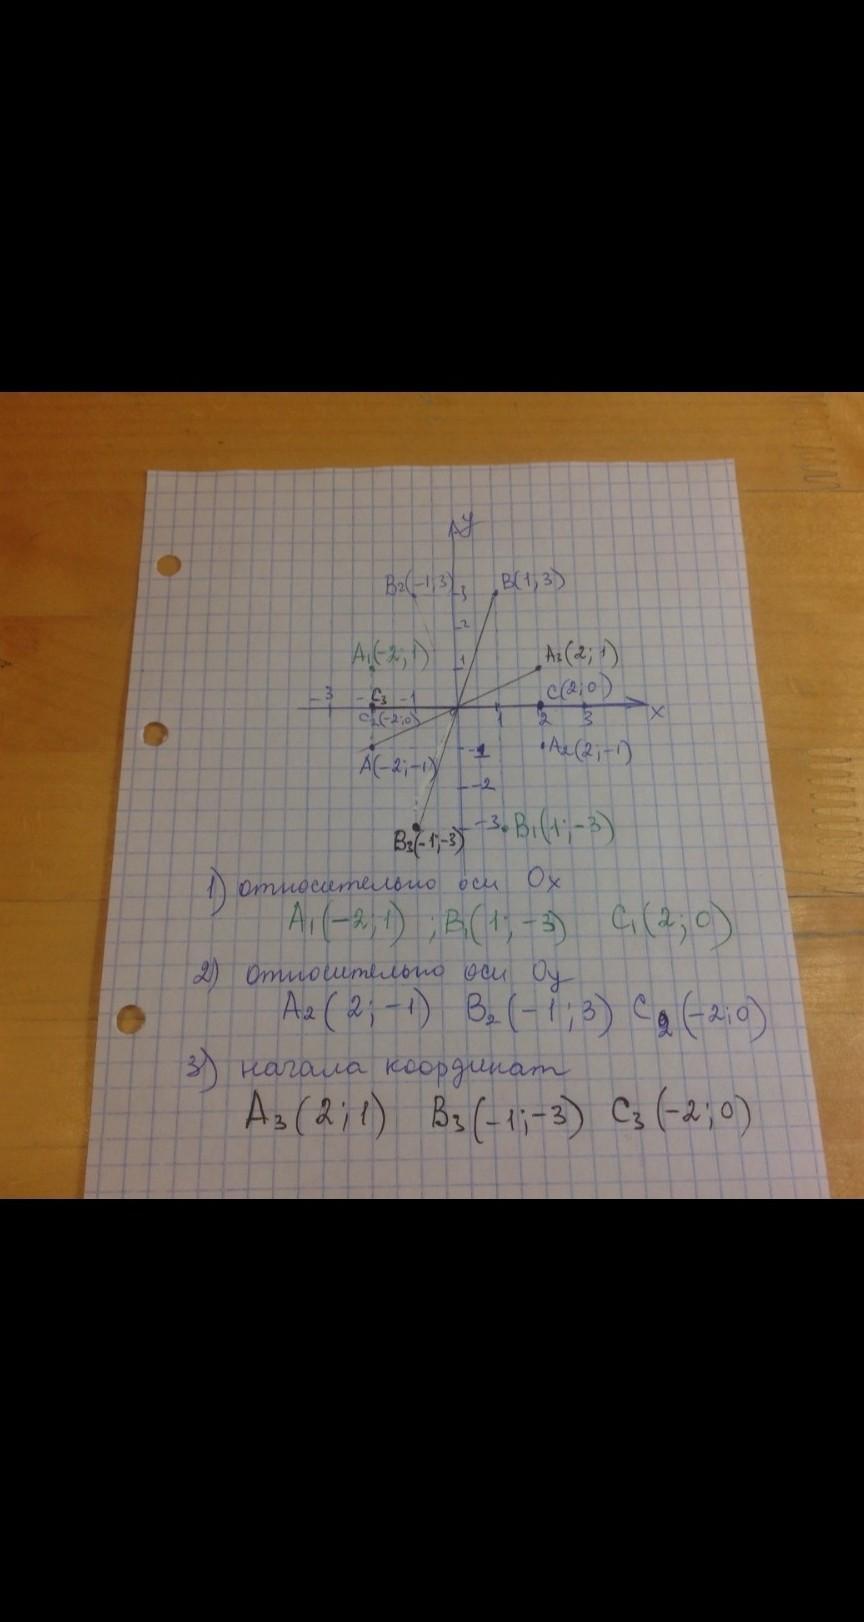 y
B₂(-1; 3) 3 B(1; 3)
2
A₁(-2; 1) 1 A₃(2; 1)
-3 - C₃ -1 C(2; 0)
C₂(-2; 0) 1 2 3 x
A(-2; -1) -1 A₂(2; -1)
-2
B₃(-1; -3) -3 B₁(1; -3)
1) относительно оси Ox
A₁(-2; 1) ; B₁(1; -3) C₁(2; 0)
2) относительно оси Oy
A₂(2; -1) B₂(-1; 3) C₂(-2; 0)
3) начала координат
A₃(2; 1) B₃(-1; -3) C₃(-2; 0)